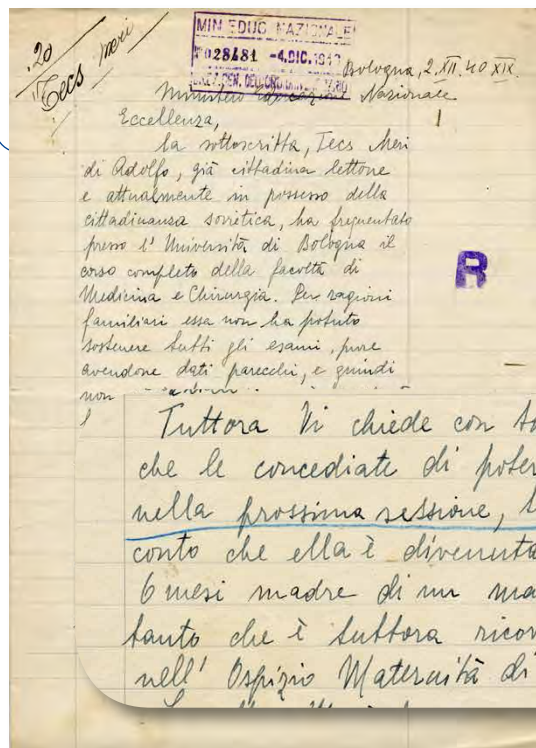 .20
Tecs Meri
MIN. EDUC. NAZIONALE
028481 -4.DIC.
Bologna, 2.XII.40 XIX.
Ministero Educazione Nazionale
Eccellenza,
la sottoscritta, Tecs Meri
di Adolfo, già cittadina lettone
e attualmente in possesso della
cittadinanza sovietica, ha frequentato
presso l' Università di Bologna il
corso completo della facoltà di
Medicina e Chirurgia. Per ragioni
familiari essa non ha potuto
sostenere tutti gli esami, pure
avendone dati parecchi, e quindi
non
R
Tuttora Vi chiede con
che le concediate di poter
nella prossima sessione,
conto che ella è divenuta
6 mesi madre di un
tanto che è tuttora
nell' Ospizio Maternità di